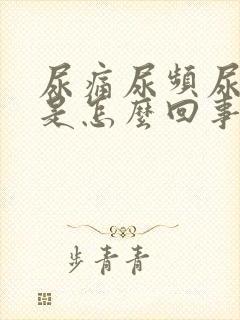 尿痛尿頻尿
是怎麼回事
步青青